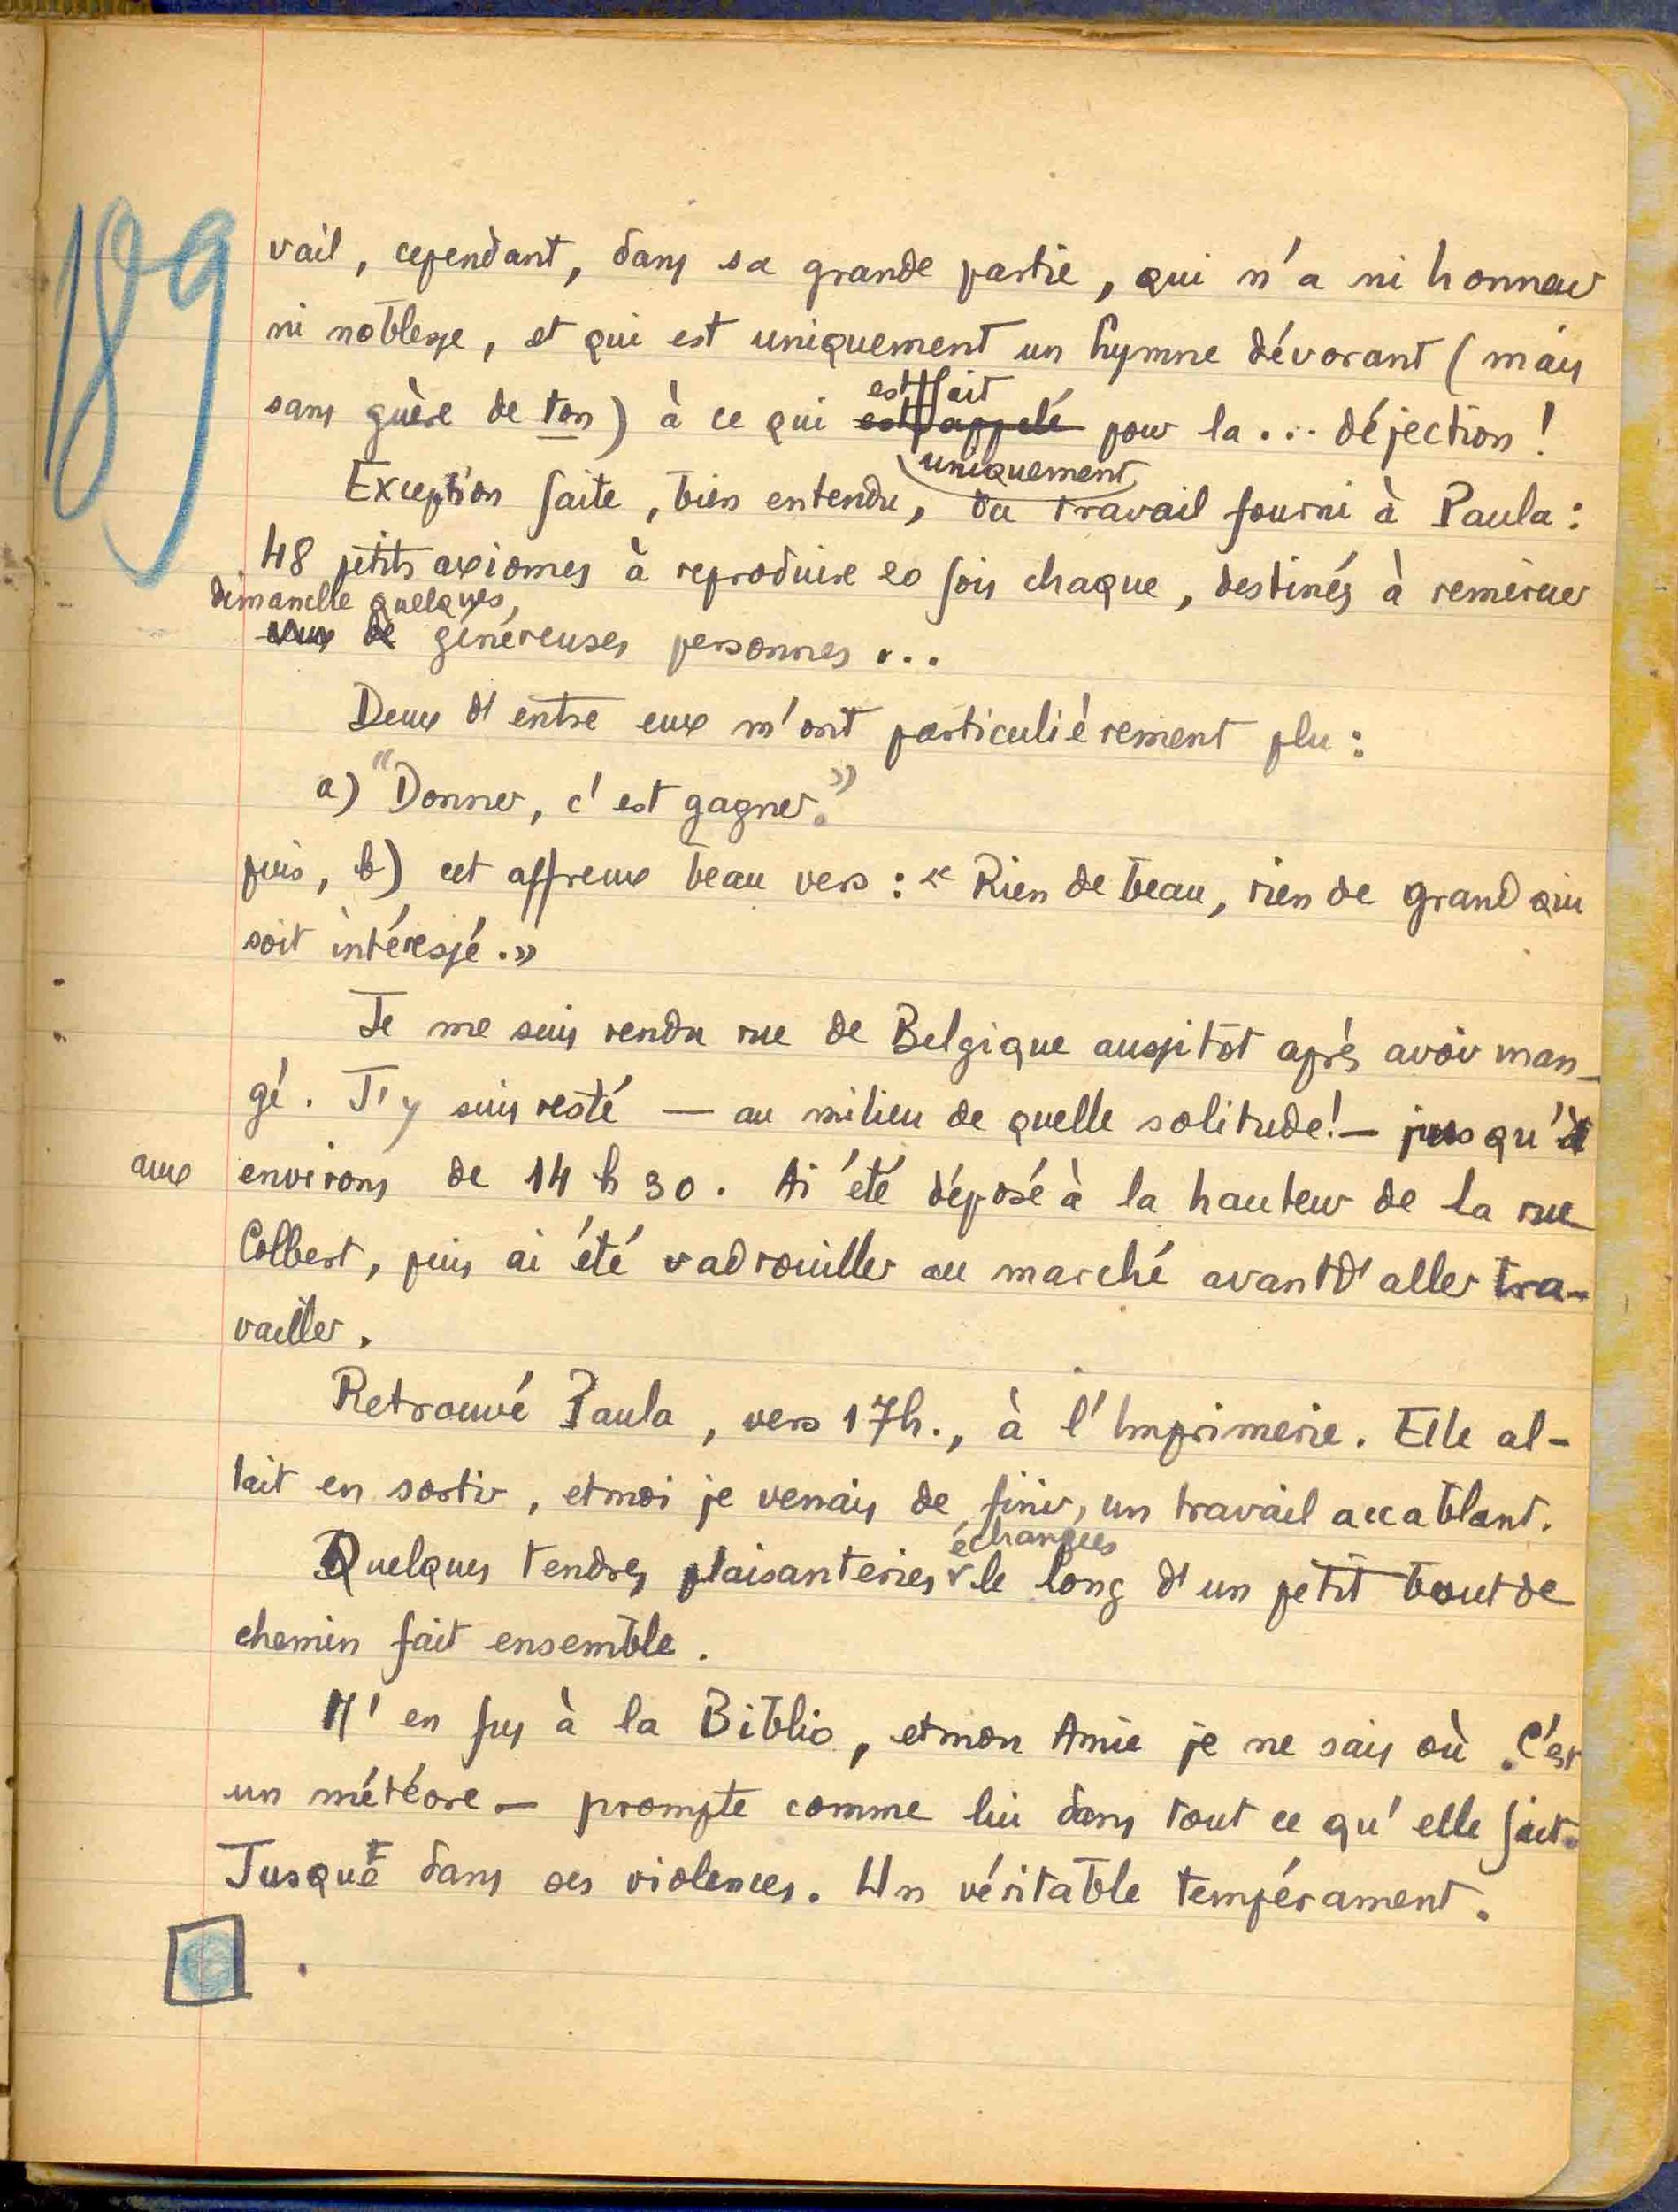 189
vail, cependant, dans sa grande partie, qui n'a ni honneur
ni noblesse, et qui est uniquement un hymne dévorant (mais
est fait
sans guère de ton) à ce qui est appelé pour la... déjection !
uniquement
Exception faite, bien entendu, du travail fourni à Paula :
48 petits axiomes à reproduire 20 fois chaque, destinés à remercier
dimanche quelques
de généreuses personnes...
Deux d'entre eux m'ont particulièrement plu :
a) "Donner, c'est gagner."
puis, b) cet affreux beau vers : « Rien de beau, rien de grand qui
soit intéressé. »
Je me suis rendu rue de Belgique aussitôt après avoir man-
gé. J'y suis resté — au milieu de quelle solitude! — jusqu'
aux environs de 14 h 30. Ai été déposé à la hauteur de la rue
Colbert, puis ai été vadrouiller au marché avant d'aller tra-
vailler.
Retrouvé Paula, vers 17h., à l'Imprimerie. Elle al-
lait en sortir, et moi je venais de finir, un travail accablant.
échangées
Quelques tendres plaisanteries le long d'un petit bout de
chemin fait ensemble.
M'en fus à la Biblio, et mon Amie je ne sais où. C'est
un météore — prompte comme lui dans tout ce qu'elle fait.
Jusque dans ses violences. Un véritable tempérament.